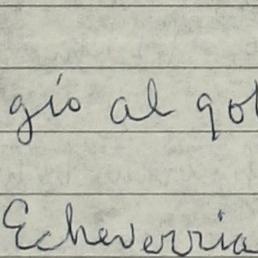 gío al gol
Echeverria